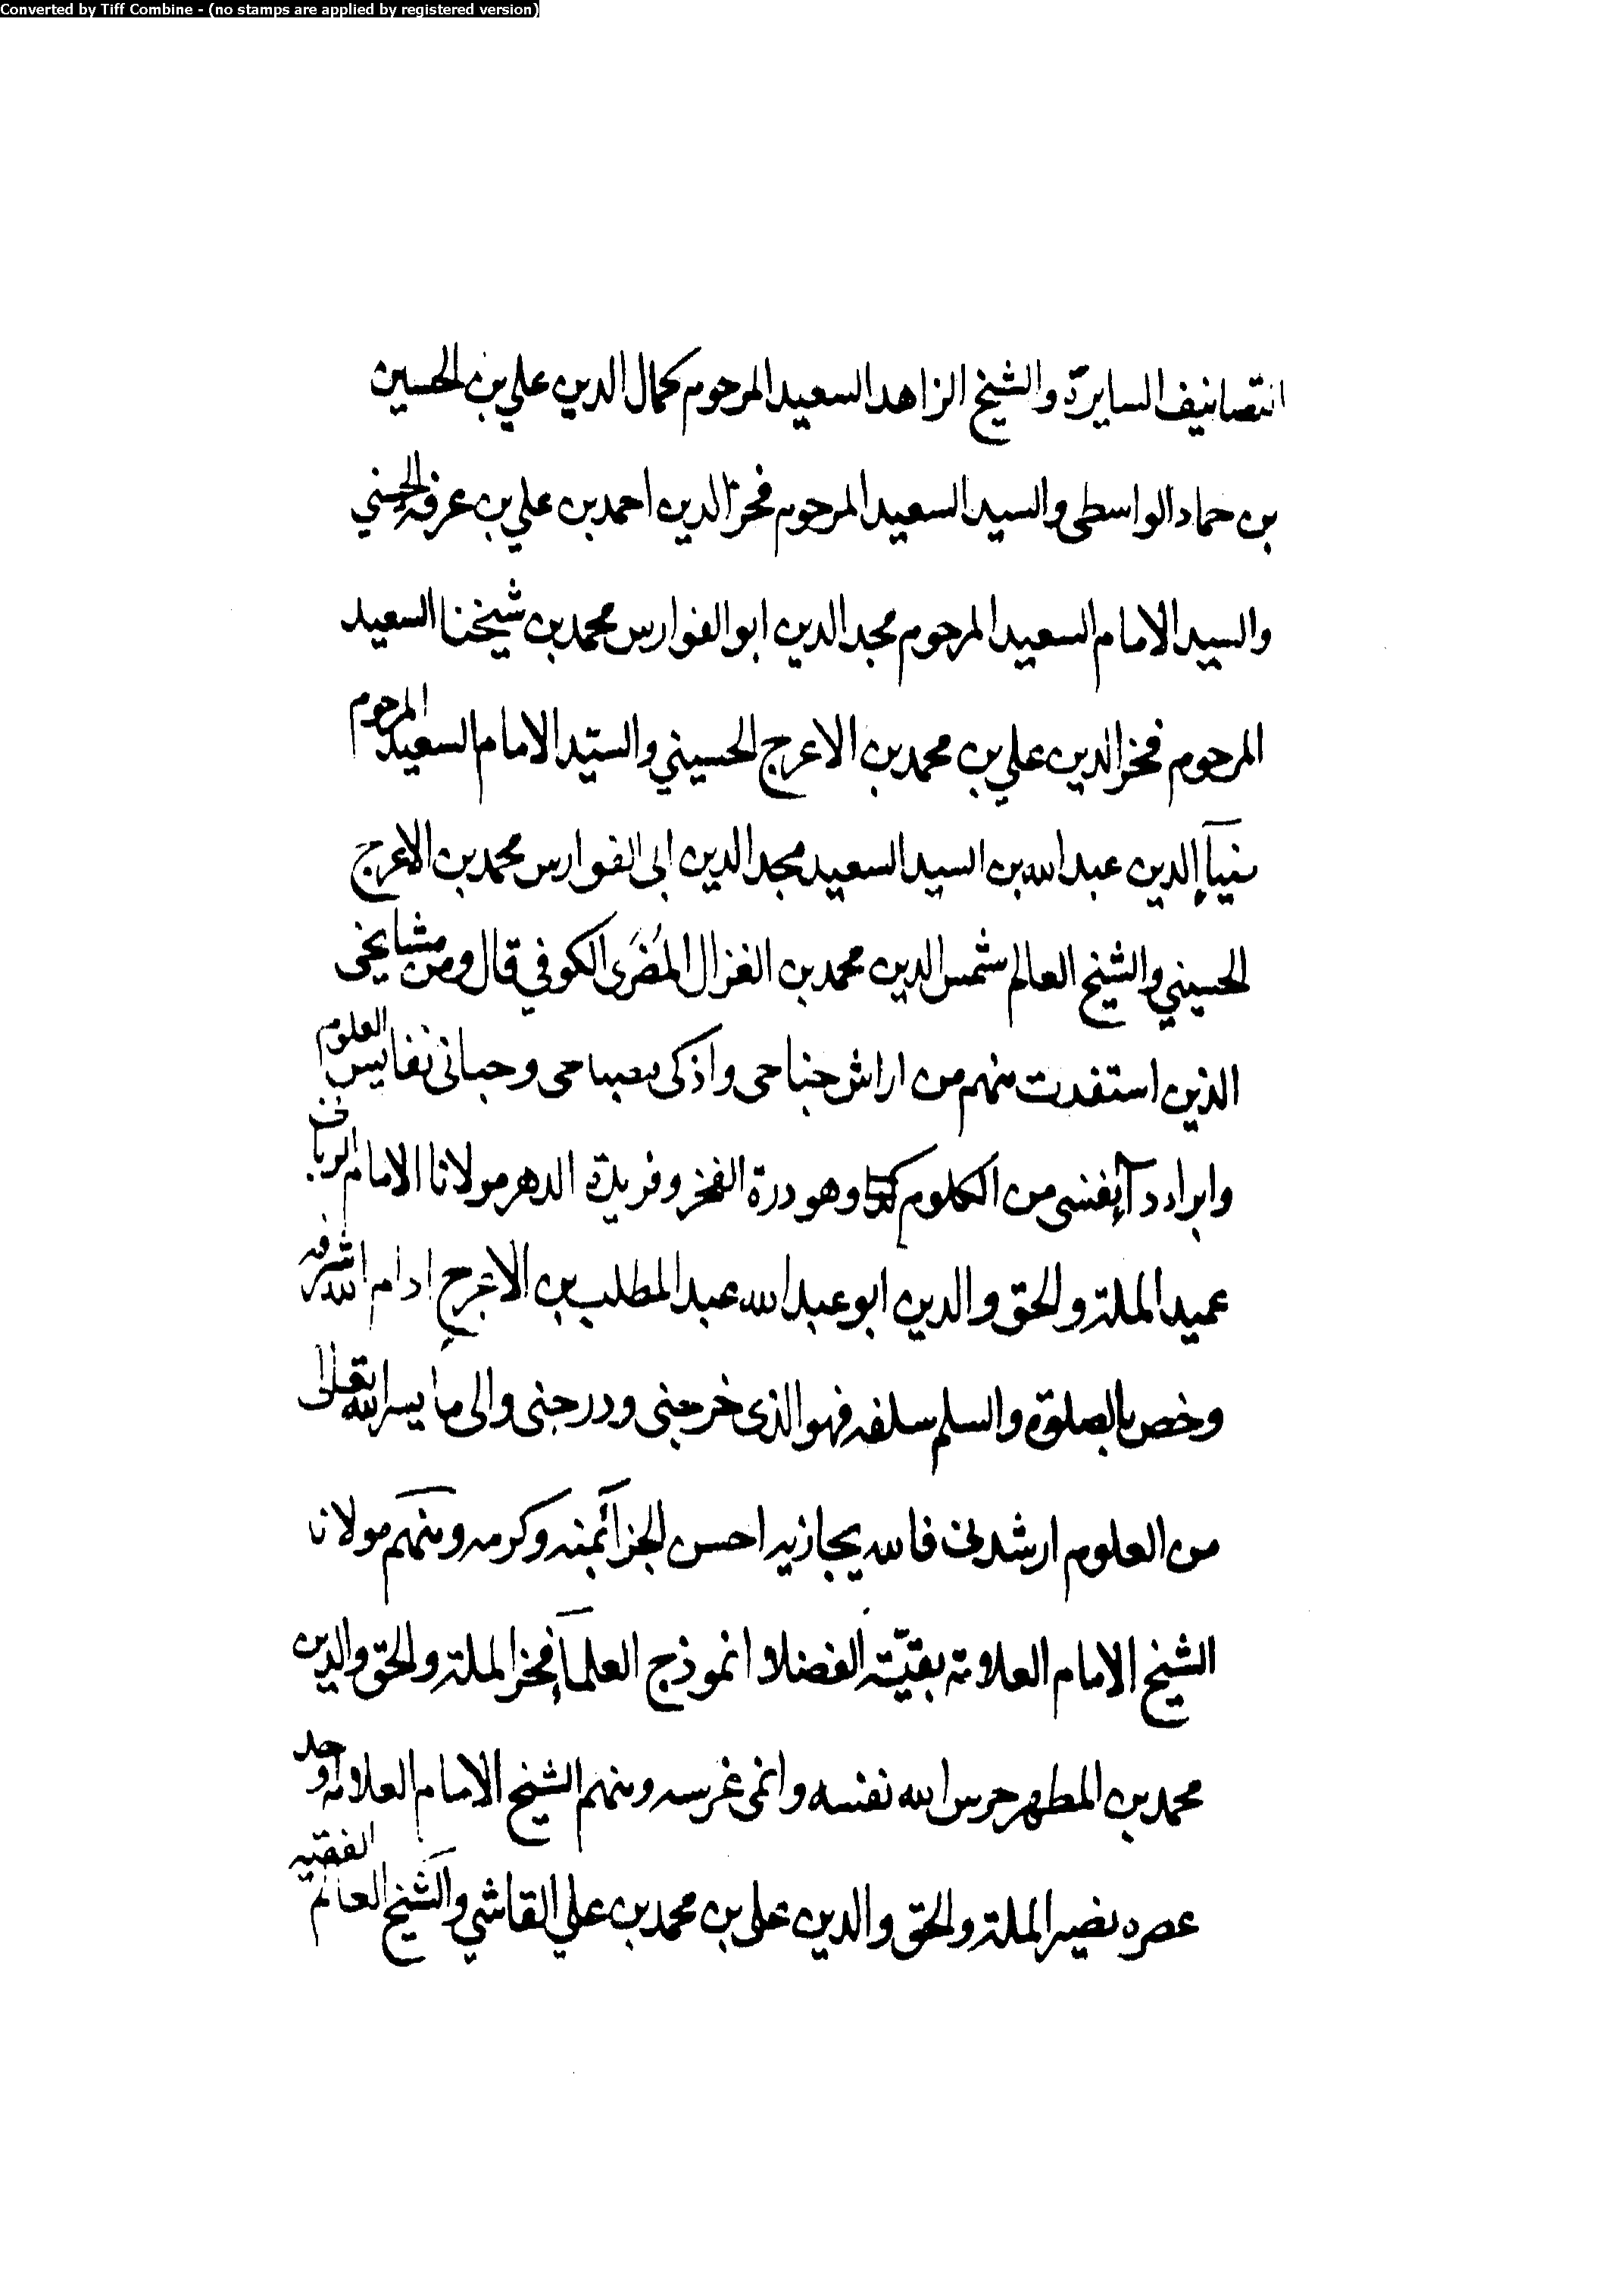 Converted by Tiff Combine - (no stamps are applied by registered version)
التصانيف السايرة والشيخ الزاهد السعيد المرحوم كمال الدين علي بن الحسين
بن حماد الواسطى والسيد السعيد المرحوم فخر الدين احمد بن علي بن عرفه الحسني
والسيد الامام السعيد المرحوم مجد الدين ابو الفوارس محمد بن شيخنا السعيد
المرحوم فخر الدين علي بن محمد بن الاعرج الحسيني والسيّد الامام السعيد المرحوم
الدين عبد الله بن السيد السعيد مجد الدين ابى الفوارس محمد بن الاعرج
الحسيني والشيخ العالم شمس الدين محمد بن الغزال المُضَرى الكوفي قال ومن مشايخى
الذين استفدت منهم من اراش جناحى واذكى مصباحى وحبانى نفايس العلوم
وابراد آء نفسى من الكلوم وهو درة الفخر وفريدة الدهر مولانا الامام الربانى
عميد الملة والحق والدين ابو عبد الله عبد المطلب بن الاعرج ادام الله شرفه
وخص بالصلوة والسلم سلفه فهو الذى خرجنى ودرجنى والى ما يسر الله تعالى
من العلوم ارشدنى فالله يجازيه احسن الجزآء بمنه وكرمه ومنهم مولانا
الشيخ الامام العلامة بقيّة الفضلا وانموذج العلمآء فخر الملة والحق والدين
محمد بن المطهر حرس الله نفسه وانمى غرسه ومنهم الشيخ الامام العلامة اوحد
عصره نصير الملة والحق والدين على بن محمد بن علي القاشي والشيخ العالم الفقيه